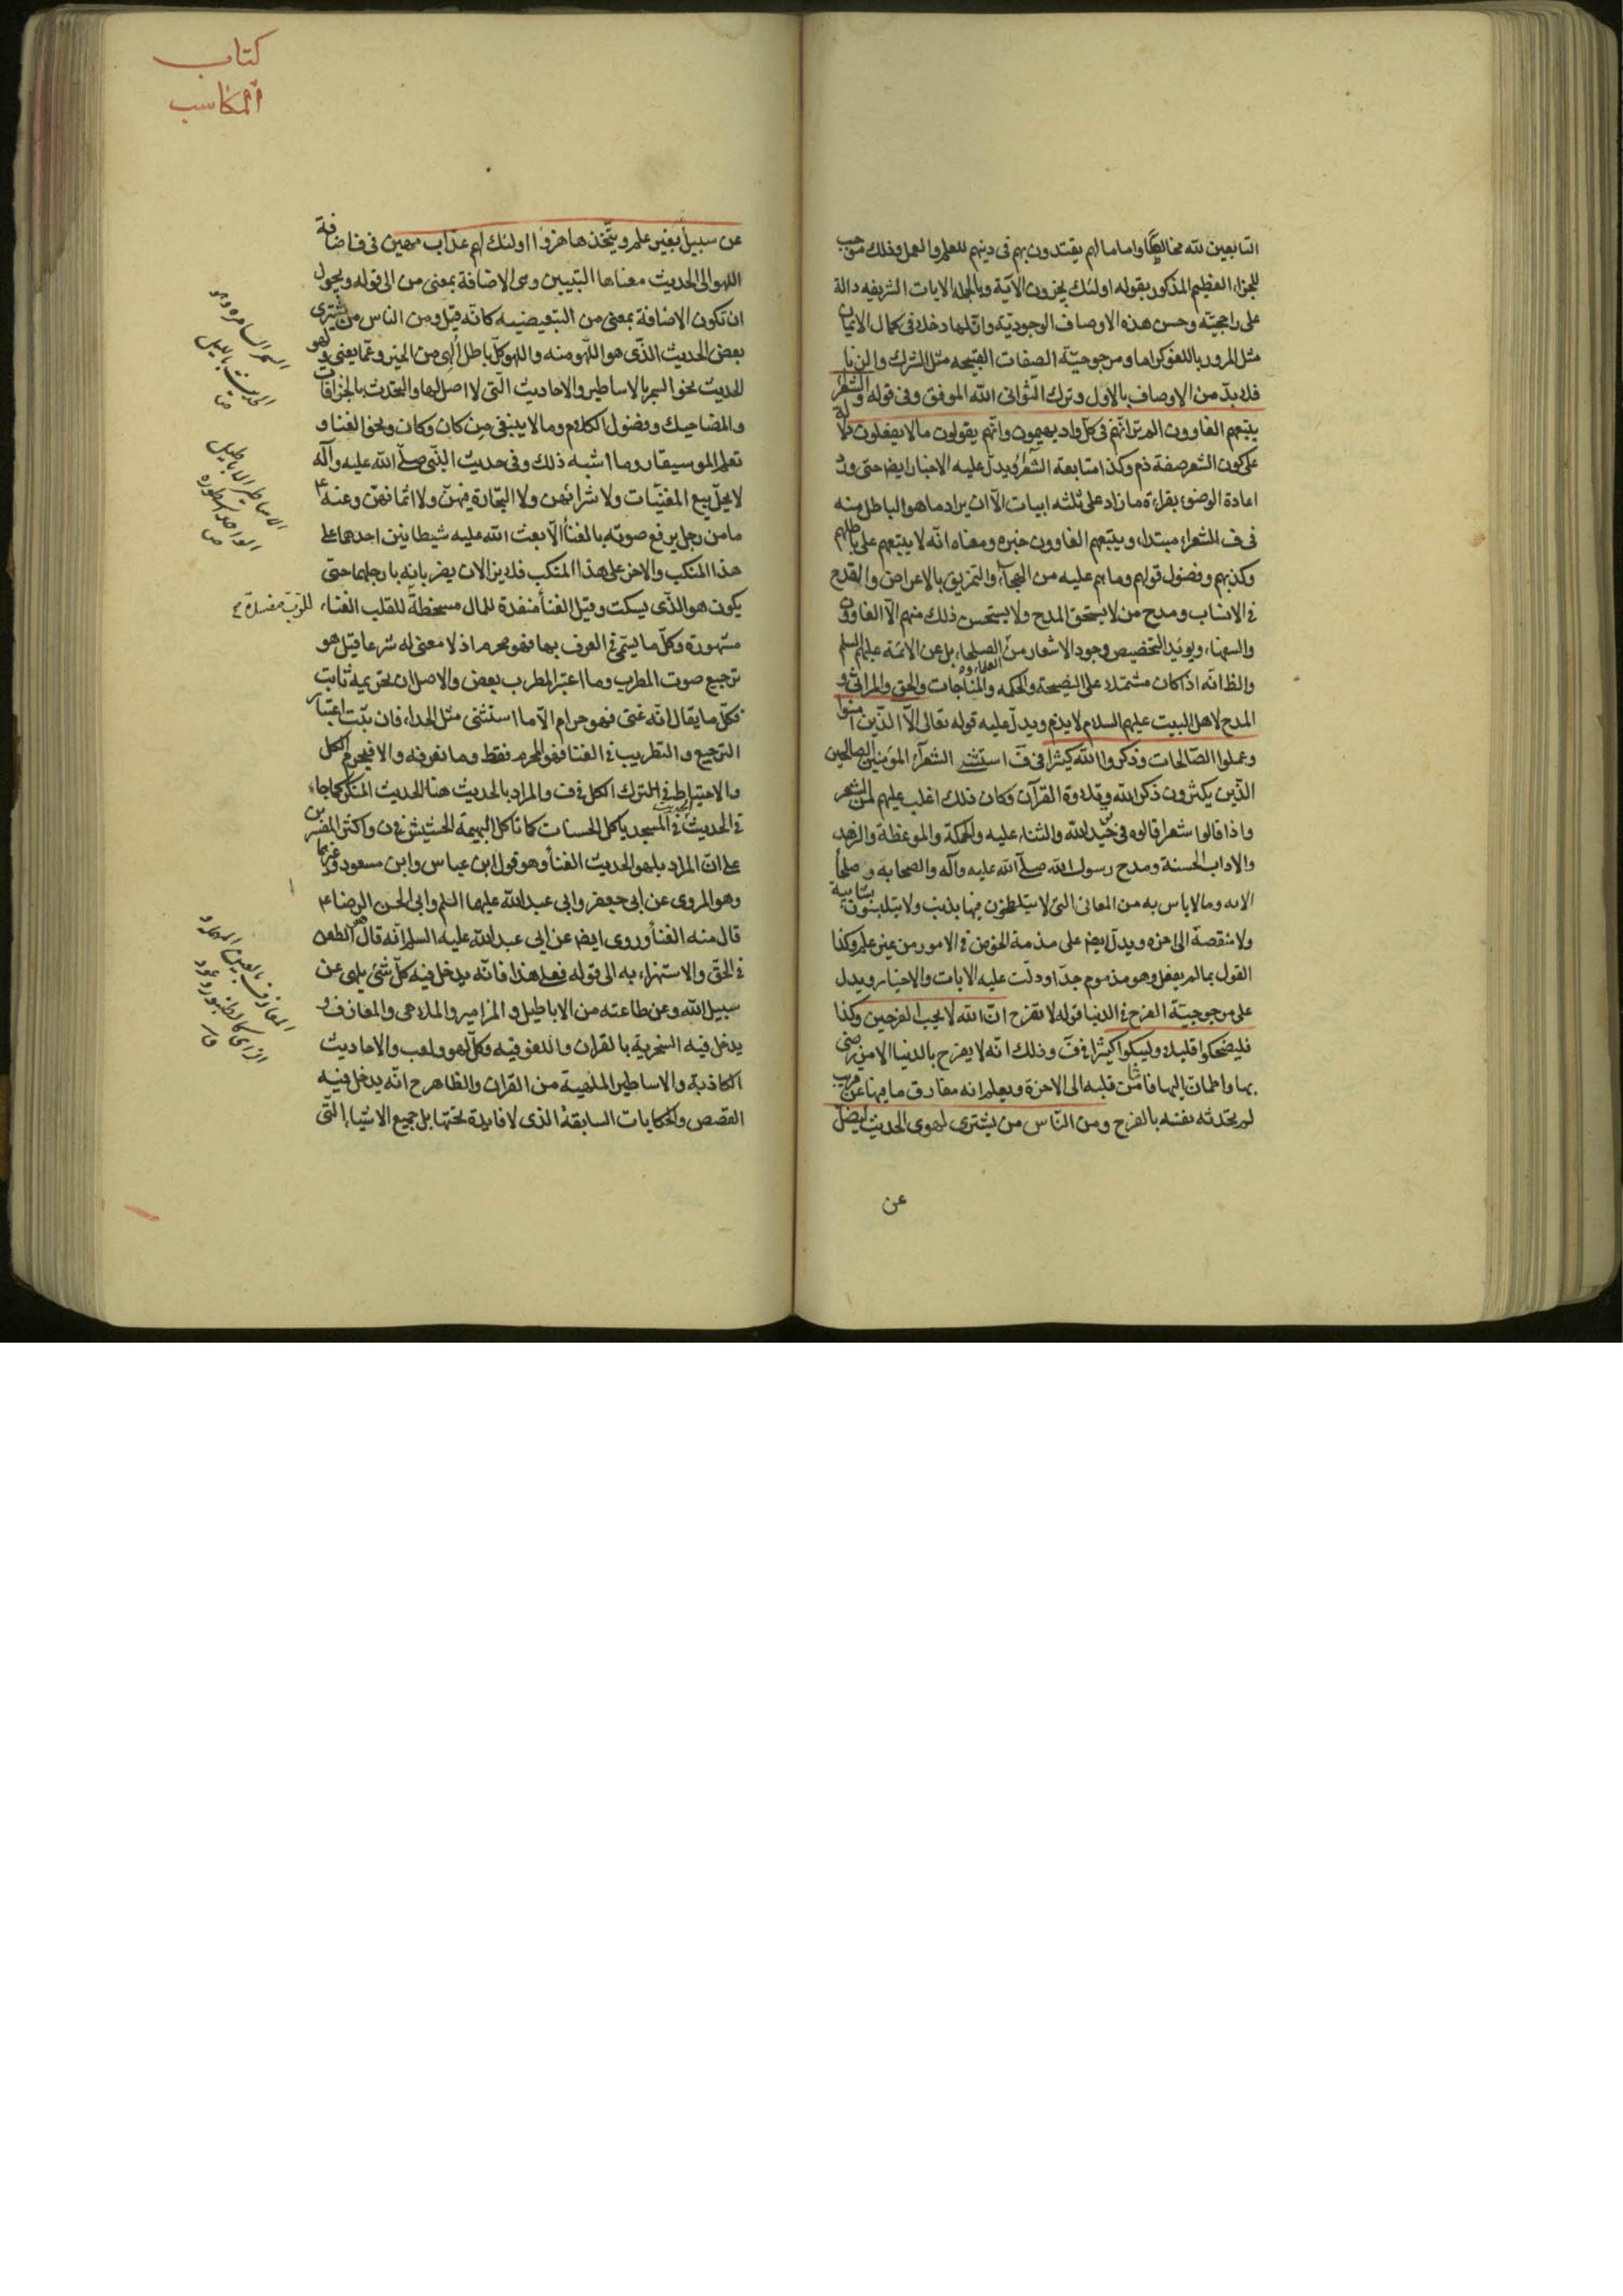 التابعين لله مخالصا واماما لهم يقتدون بهم فى دينهم للعلم والعمل وذلك موجب
للجزاء العظيم المذكور بقوله اولئك يجزون الآية وبالجمله الايات الشريفه دالة
على راجحيّة وحسن هذه الاوصاف الوجوديّة وانّ لها دخلا فى كمال الايمان
مثل المرور باللغو كراما ومرجوحيّة الصفات القبيحه مثل الشرك والزنا
فلا بدّ من الاوصاف بالاول وترك الثوانى الله الموفق وفى قوله والشعراء
يتبعهم الغاوون الم تر انّهم فى كلّ واد يهيمون وانّهم يقولون مالا يفعلون دلالة
على كون الشعر صفة ذم وكذا متابعة الشعراء ويدلّ عليه الاخبار ايض حتى ورد
اعادة الوضوء بقراءة ما زاد على ثلثه ابيات الّا ان يراد ما هو الباطل منه
فى ف الشعراء مبتدا ويتبعهم الغاوون خبره ومعناه انّه لا يتبعهم على باطلهم
وكذبهم وفضول قولهم وما هم عليه من الهجاء والتمزيق بالاعراض والقدح
فى الانساب ومدح من لا يستحق المدح ولا يستحسن ذلك منهم الّا الغاوون
والسفهاء ويؤيد التخصيص وجود الاشعار من الصلحاء بل عن الائمة عليهم السلم
العلماء و
والظ انّه اذا كان مشتملا على النصيحة والحكمه والمناجات والحق والمراثى و
المدح لاهل البيت عليهم السلام لا يذم ويدلّ عليه قوله تعالى الّا الذين امنوا
وعملوا الصّالحات وذكروا الله كثيرا فى ف استثنى الشعراء المؤمنين الصالحين
الذين يكثرون ذكر الله وتلاوة القرآن وكان ذلك اغلب عليهم من الشعر
واذا قالوا شعرا قالوه فى توحيد الله والثناء عليه والحكمة والموعظة والزهد
والاداب الحسنة ومدح رسول الله صلّى الله عليه وآله والصحابه وصلحاء
الامه وما لا باس به من المعانى التى لا يتلطخون فيها بذنب ولا يتلبسون بشائبة
ولا منقصة الى اخره ويدلّ ايض على مذمة الخوض فى الامور من غير علم وكذا
القول بما لم يفعل وهو مذموم جدّا ودلّت عليه الايات والاخبار ويدل
على مرجوحيّة الفرح فى الدنيا قوله لا تفرح انّ الله لا يحب الفرحين وكذا
فليضحكوا قليلا وليبكوا كثيرا فى ف وذلك انّه لا يفرح بالدنيا الا من رضى
بها واطمان اليها فامّا من قلبه الى الاخرة ويعلم انه مفارق ما فيها عن قريب
لم يحدّثه نفسه بالفرح ومن النّاس من يشترى لهوى الحديث ليضلّ
عن
كتاب
المكاسب
عن سبيل بغير علم ويتّخذها هزوا اولئك لهم عذاب مهين فى ف اضافة
اللهو الى الحديث معناها التبيين وهى الاضافة بمعنى من الى قوله ويجوز
ان تكون الاضافة بمعنى من التبعيضيه كانّه قيل ومن الناس من يشترى
بعض الحديث الذّى هو اللّهو منه واللهو كلّ باطل ألهى عن الخير وعمّا يعنى ولهو
الحديث نحو السمر بالاساطير والاحاديث الّتى لا اصل لها والتحدث بالخرافات
والمضاحيك وفضول الكلام وما لا ينبغى من كان وكان ونحو الغناء و
تعلم الموسيقار وما اشبه ذلك وفى حديث النّبى صلّى الله عليه وآله
لا يحلّ بيع المغنّيات ولا شرائهن ولا التجارة فيهنّ ولا اثمانهنّ وعنه ع
ما من رجل يرفع صوته بالغناء الّا بعث الله عليه شيطانين احدهما على
هذا المنكب والاخر على هذا المنكب فلا يزالان يضربانه بارجلهما حتى
يكون هو الذّى يسكت وقيل الغناء منفدة للمال مسخطة للقلب الغناء
مشهورة وكلّ ما يسمّى فى العرف بها فهو محرم اذ لا معنى له شرعا قيل هو
ترجيع صوت المطرب وما اعتبر المطرب بعض والاصل ان تحريمه ثابت
فكلّ ما يقال انّه غنى فهو حرام الّا ما استثنى مثل الحداء فان ثبت اعتبار
الترجيع والتطريب فى الغنا فهو المحرم فقط وما نعرفه والا فيحرم الكل
والاحتياط فى الترك الكل فى ف والمراد بالحديث هنا الحديث المنكر كما جاء
فى الحديث الحديث فى المسجد ياكل الحسنات كما تاكل البهيمة الحشيش فى ن واكثر المفسرين
على انّ المراد بلهو الحديث الغناء وهو قول ابن عباس وابن مسعود وغيرهما
وهو المروى عن ابى جعفر وابى عبد الله عليهما السلم وابى الحسن الرضا ع
قال منه الغناء وروى ايض عن ابى عبد الله عليه السلم انّه قال هو الطعن
فى الحقّ والاستهزاء به الى قوله فعلى هذا فانّه يدخل فيه كلّ شئ يلهى عن
سبيل الله وعن طاعته من الاباطيل و المزامير والملاهى والمعازف و
يدخل فيه السخرية بالقران واللغو فيه وكلّ لهو ولعب والاحاديث
الكاذبة والاساطير الملهية من القران والظاهر ح انّه يدخل فيه
القصص والحكايات السابقة الذى لا فايدة تحتها بل جميع الاشياء الّتى
السمر المسامرة وهو
الحديث بالليل
ص
الاساطير الاباطيل
الواحد اسطوره
ص